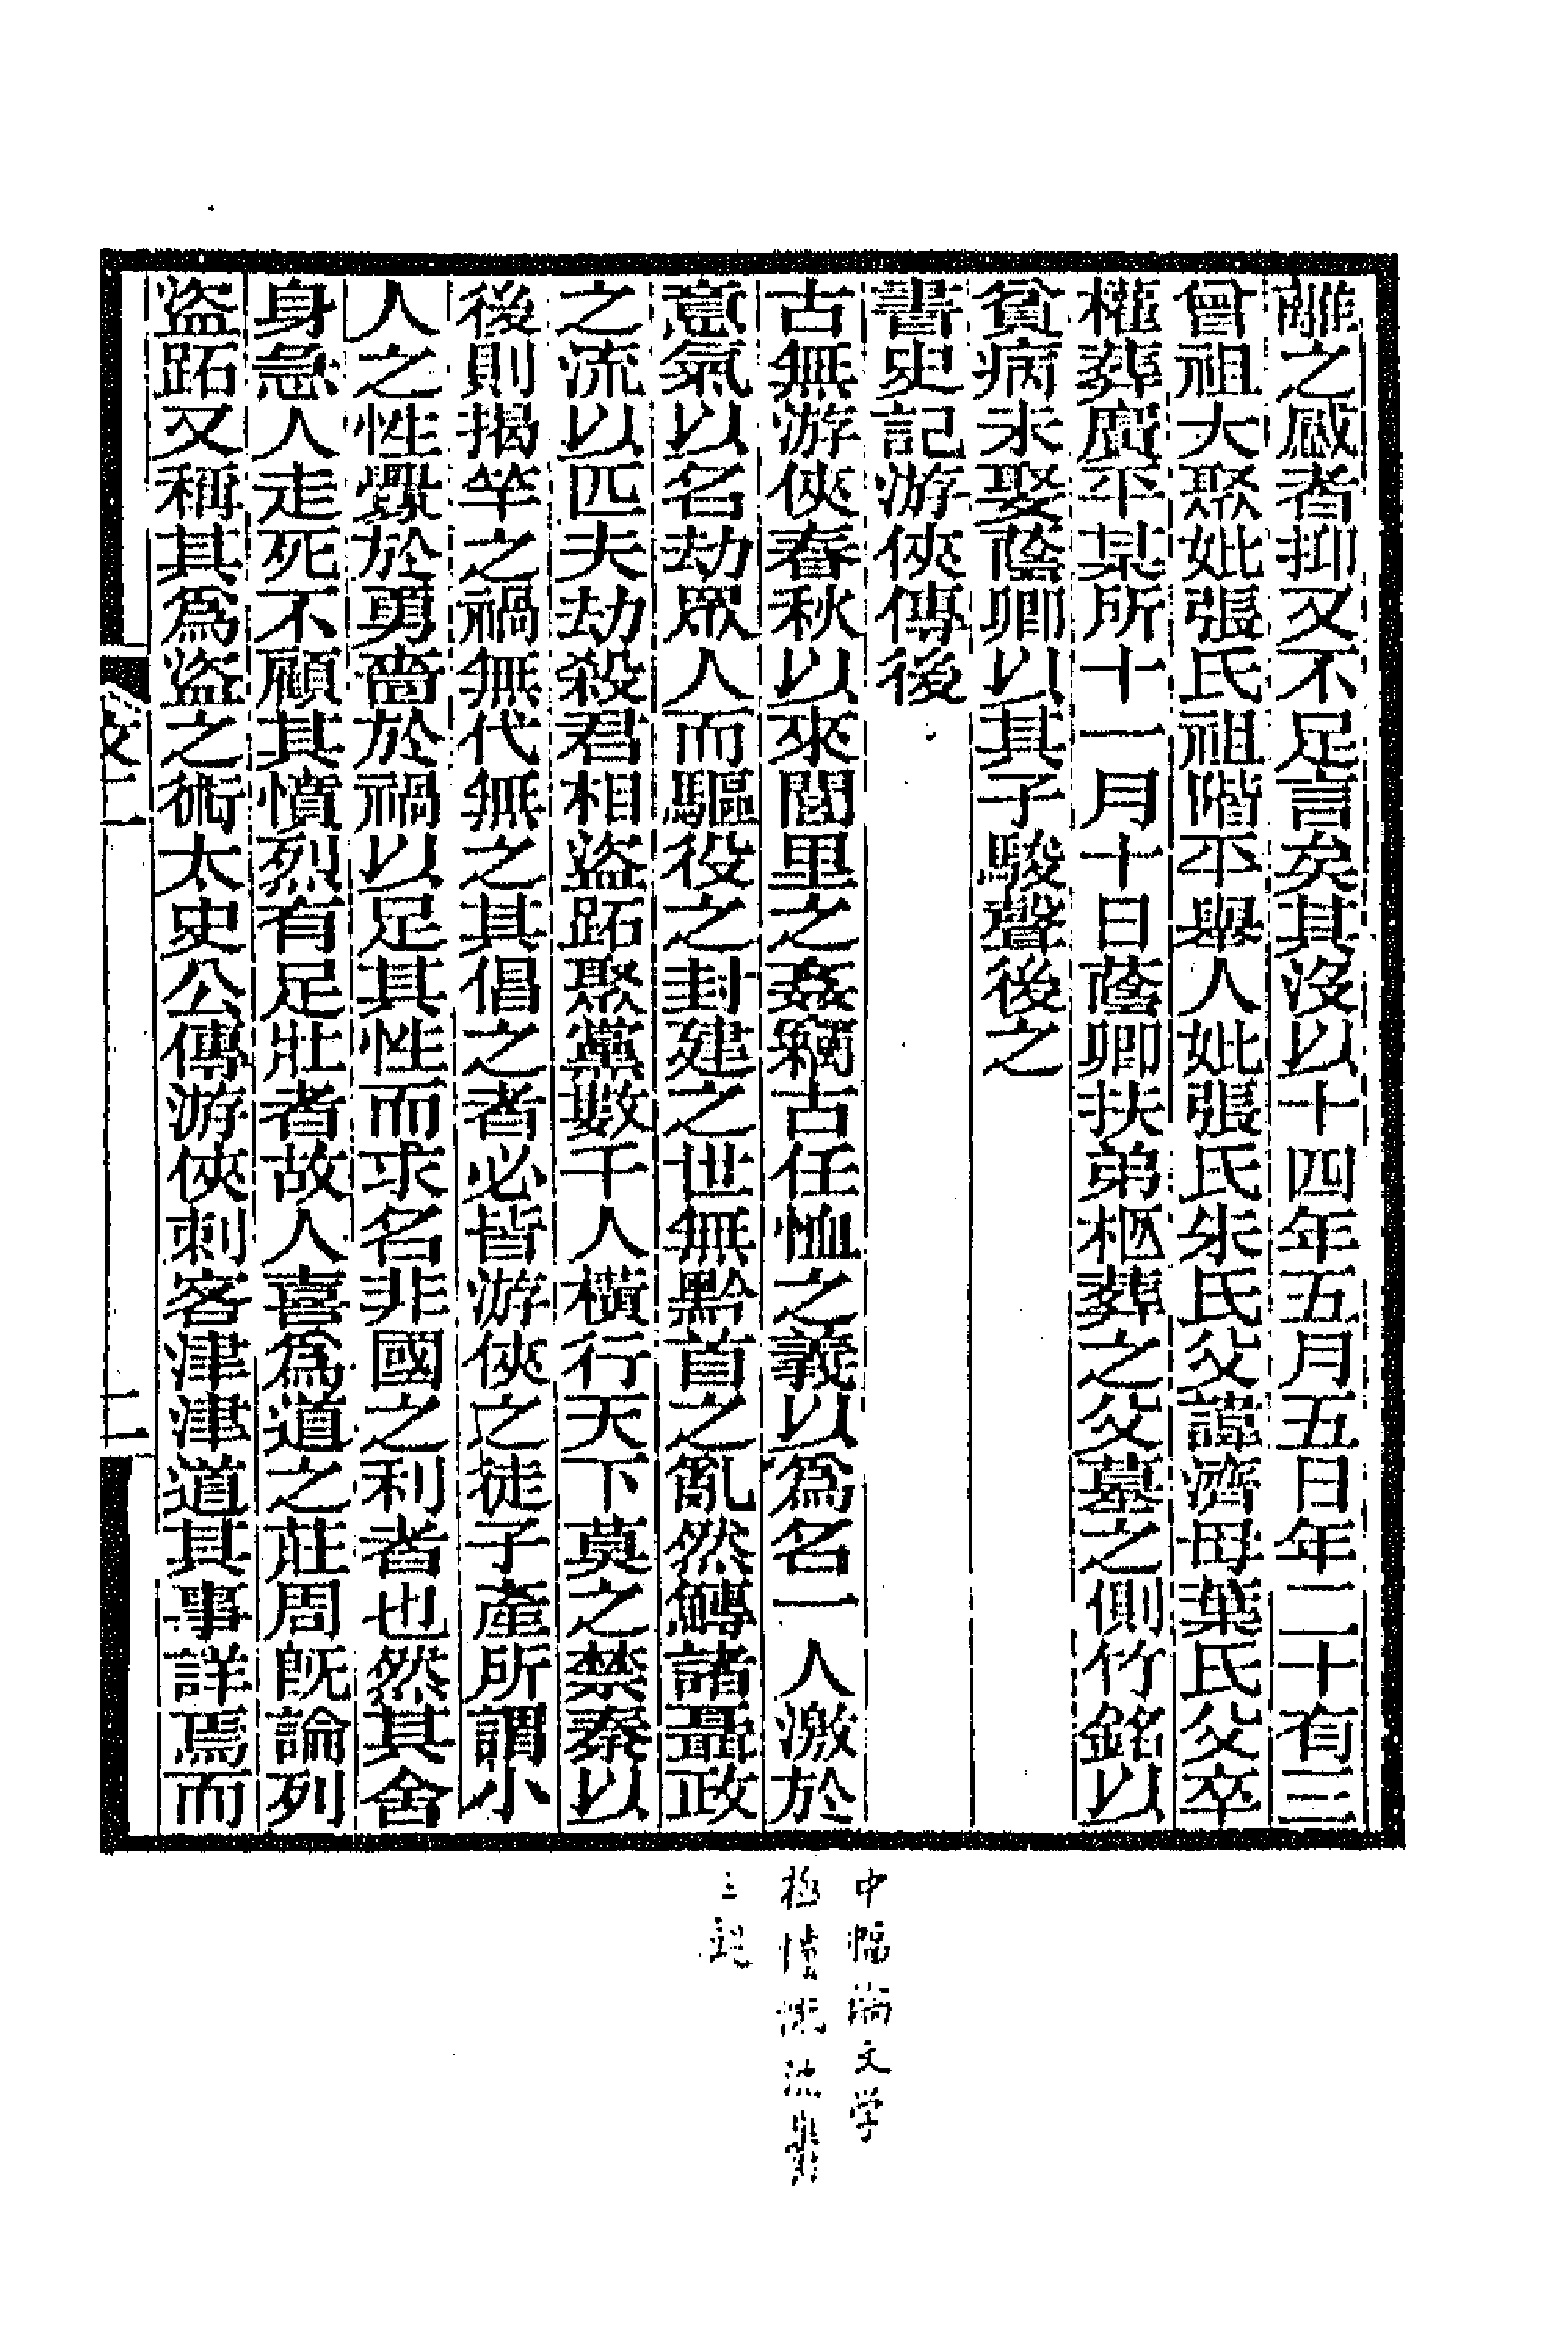 離之感者抑又不足言矣其沒以十四年五月五日年二十有三
曾祖大聚妣張氏祖階平舉人妣張氏朱氏父諱濟母葉氏父卒
權葬廣平某所十一月十日蔭卿扶弟柩葬之父墓之側竹銘以
貧病未娶蔭卿以其子駿聲後之
書史記游俠傳後
古無游俠春秋以來閭里之姦竊古任恤之義以爲名一人激於
意氣以名劫眾人而驅役之封建之世無黔首之亂然鱄諸聶政
之流以匹夫劫殺君相盜跖聚黨數千人橫行天下莫之禁秦以
後則揭竿之禍無代無之其倡之者必皆游俠之徒子產所謂小
人之性釁於勇嗇於禍以足其性而求名非國之利者也然其舍
身急人走死不顧其憤烈有足壯者故人喜爲道之莊周旣論列
盜跖又稱其爲盜之術太史公傳游俠刺客津津道其事詳焉而
文二
二
中 文学